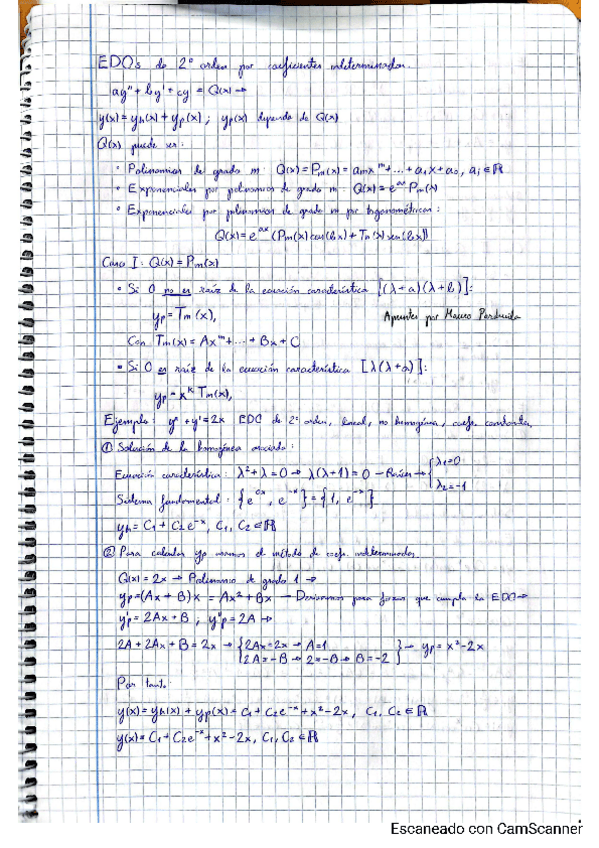 EDOs de 2º orden por coeficientes indeterminados.
ay" + by' + cy = Q(x) →
y(x) = yh(x) + yp(x) ; yp(x) depende de Q(x)
Q(x) puede ser:
• Polinomios de grado m : Q(x) = Pm(x) = amx^m + ... + a1x + a0, ai ∈ ℝ
• Exponenciales por polinomios de grado m : Q(x) = e^ax Pm(x)
• Exponenciales por polinomios de grado m por trigonométricas :
Q(x) = e^ax (Pm(x) cos(bx) + Tm(x) sen(bx))
Caso I : Q(x) = Pm(x)
• Si 0 no es raíz de la ecuación característica [(λ+a)(λ+b)]:
yp = Tm(x),
Apuntes por Marco
Con Tm(x) = Ax^m + ... + Bx + C
• Si 0 es raíz de la ecuación característica [λ(λ+a)]:
yp = x^k Tm(x),
Ejemplo : y" + y' = 2x EDO de 2º orden, lineal, no homogénea, coefs. constantes.
① Solución de la homogénea asociada :
Ecuación característica : λ² + λ = 0 → λ(λ+1) = 0 → Raíces → { λ1 = 0
λ2 = -1
Sistema fundamental : {e^0x, e^-x} = {1, e^-x}
yh = C1 + C2e^-x, C1, C2 ∈ ℝ
② Para calcular yp usamos el método de coefs. indeterminados.
Q(x) = 2x → Polinomio de grado 1 →
yp = (Ax + B)x = Ax² + Bx → Derivamos para forzar que cumpla la EDO →
y'p = 2Ax + B ; y"p = 2A →
2A + 2Ax + B = 2x → { 2Ax = 2x → A = 1
2A = -B → 2 = -B → B = -2 } → yp = x² - 2x
Por tanto:
y(x) = yh(x) + yp(x) = C1 + C2e^-x + x² - 2x, C1, C2 ∈ ℝ
y(x) = C1 + C2e^-x + x² - 2x, C1, C2 ∈ ℝ
Escaneado con CamScanner